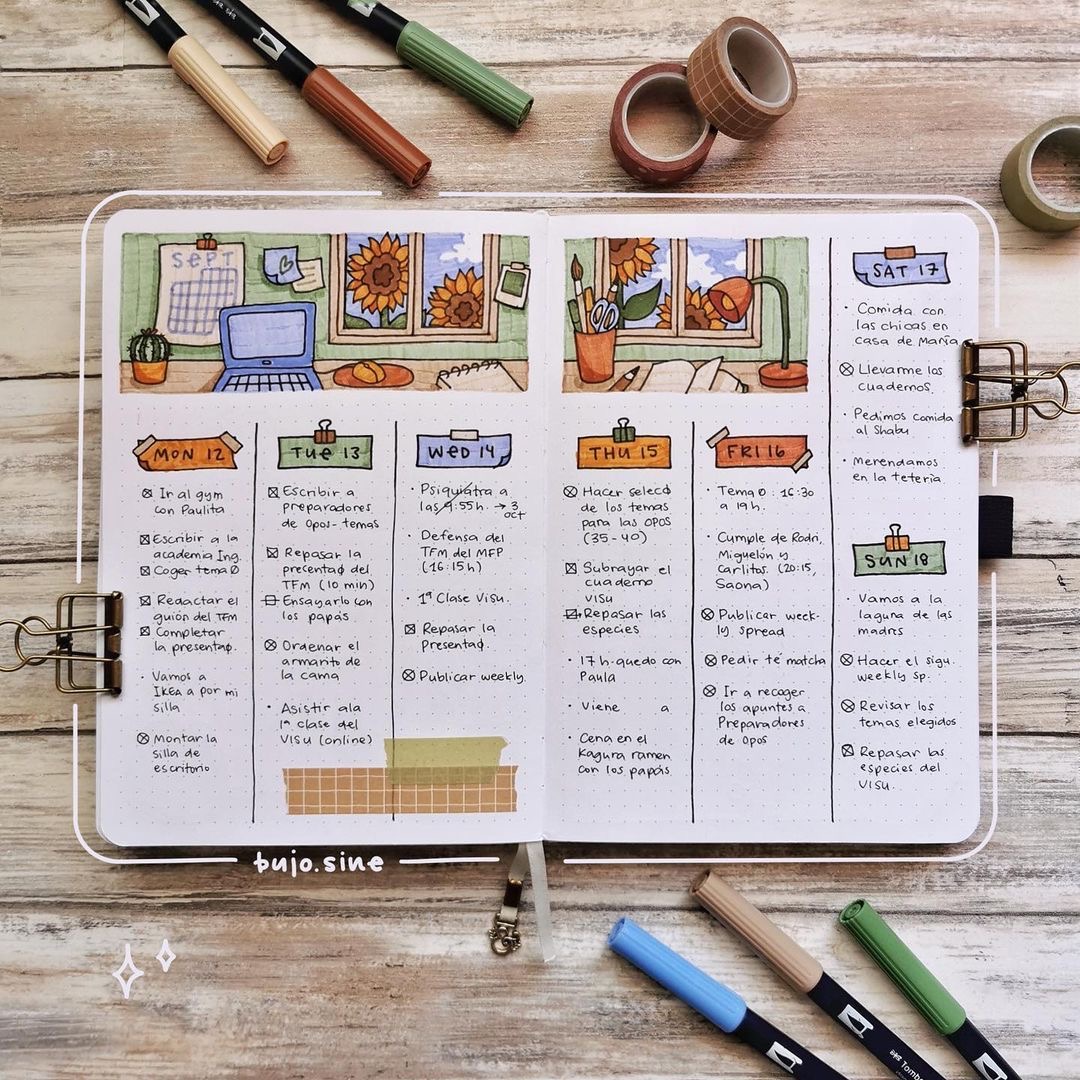 SEPT
MON 12
Ir al gym
con Paulita
Escribir a la
academia Ing.
Coger tema 0
Redactar el
guión del TFM
Completar
la presentaø.
Vamos a
IKEA a por mi
silla
Montar la
silla de
escritorio
TUE 13
Escribir a
preparadores
de opos-temas
Repasar la
presentaø del
TFM (10 min)
Ensayarlo con
los papás
Ordenar el
armarito de
la cama
Asistir a la
1ª clase del
VISU (online)
WED 14
Psiquiatra a
las 9:55h. → 3
oct
Defensa del
TFM del MFP
(16:15h)
1ª Clase Visu.
Repasar la
Presentaø.
Publicar weekly.
THU 15
Hacer selecø
de los temas
para las OPOS
(35-40)
Subrayar el
cuaderno
VISU
Repasar las
especies
17 h. quedo con
Paula
Viene a
Cena en el
Kagura ramen
con los papás
FRI 16
Tema 0: 16:30
a 19h.
Cumple de Rodri,
Miguelón y
Carlitos. (20:15,
Saona)
Publicar week-
ly spread
Pedir té matcha
Ir a recoger
los apuntes a
Preparadores
de Opos
SAT 17
Comida con
las chicas en
casa de María
Llevarme los
cuadernos.
Pedimos comida
al Shabu
Merendamos
en la tetería
SUN 18
Vamos a la
laguna de las
madres
Hacer el sigu.
weekly sp.
Revisar los
temas elegidos
Repasar las
especies del
VISU.
bujo.sine
Tombow